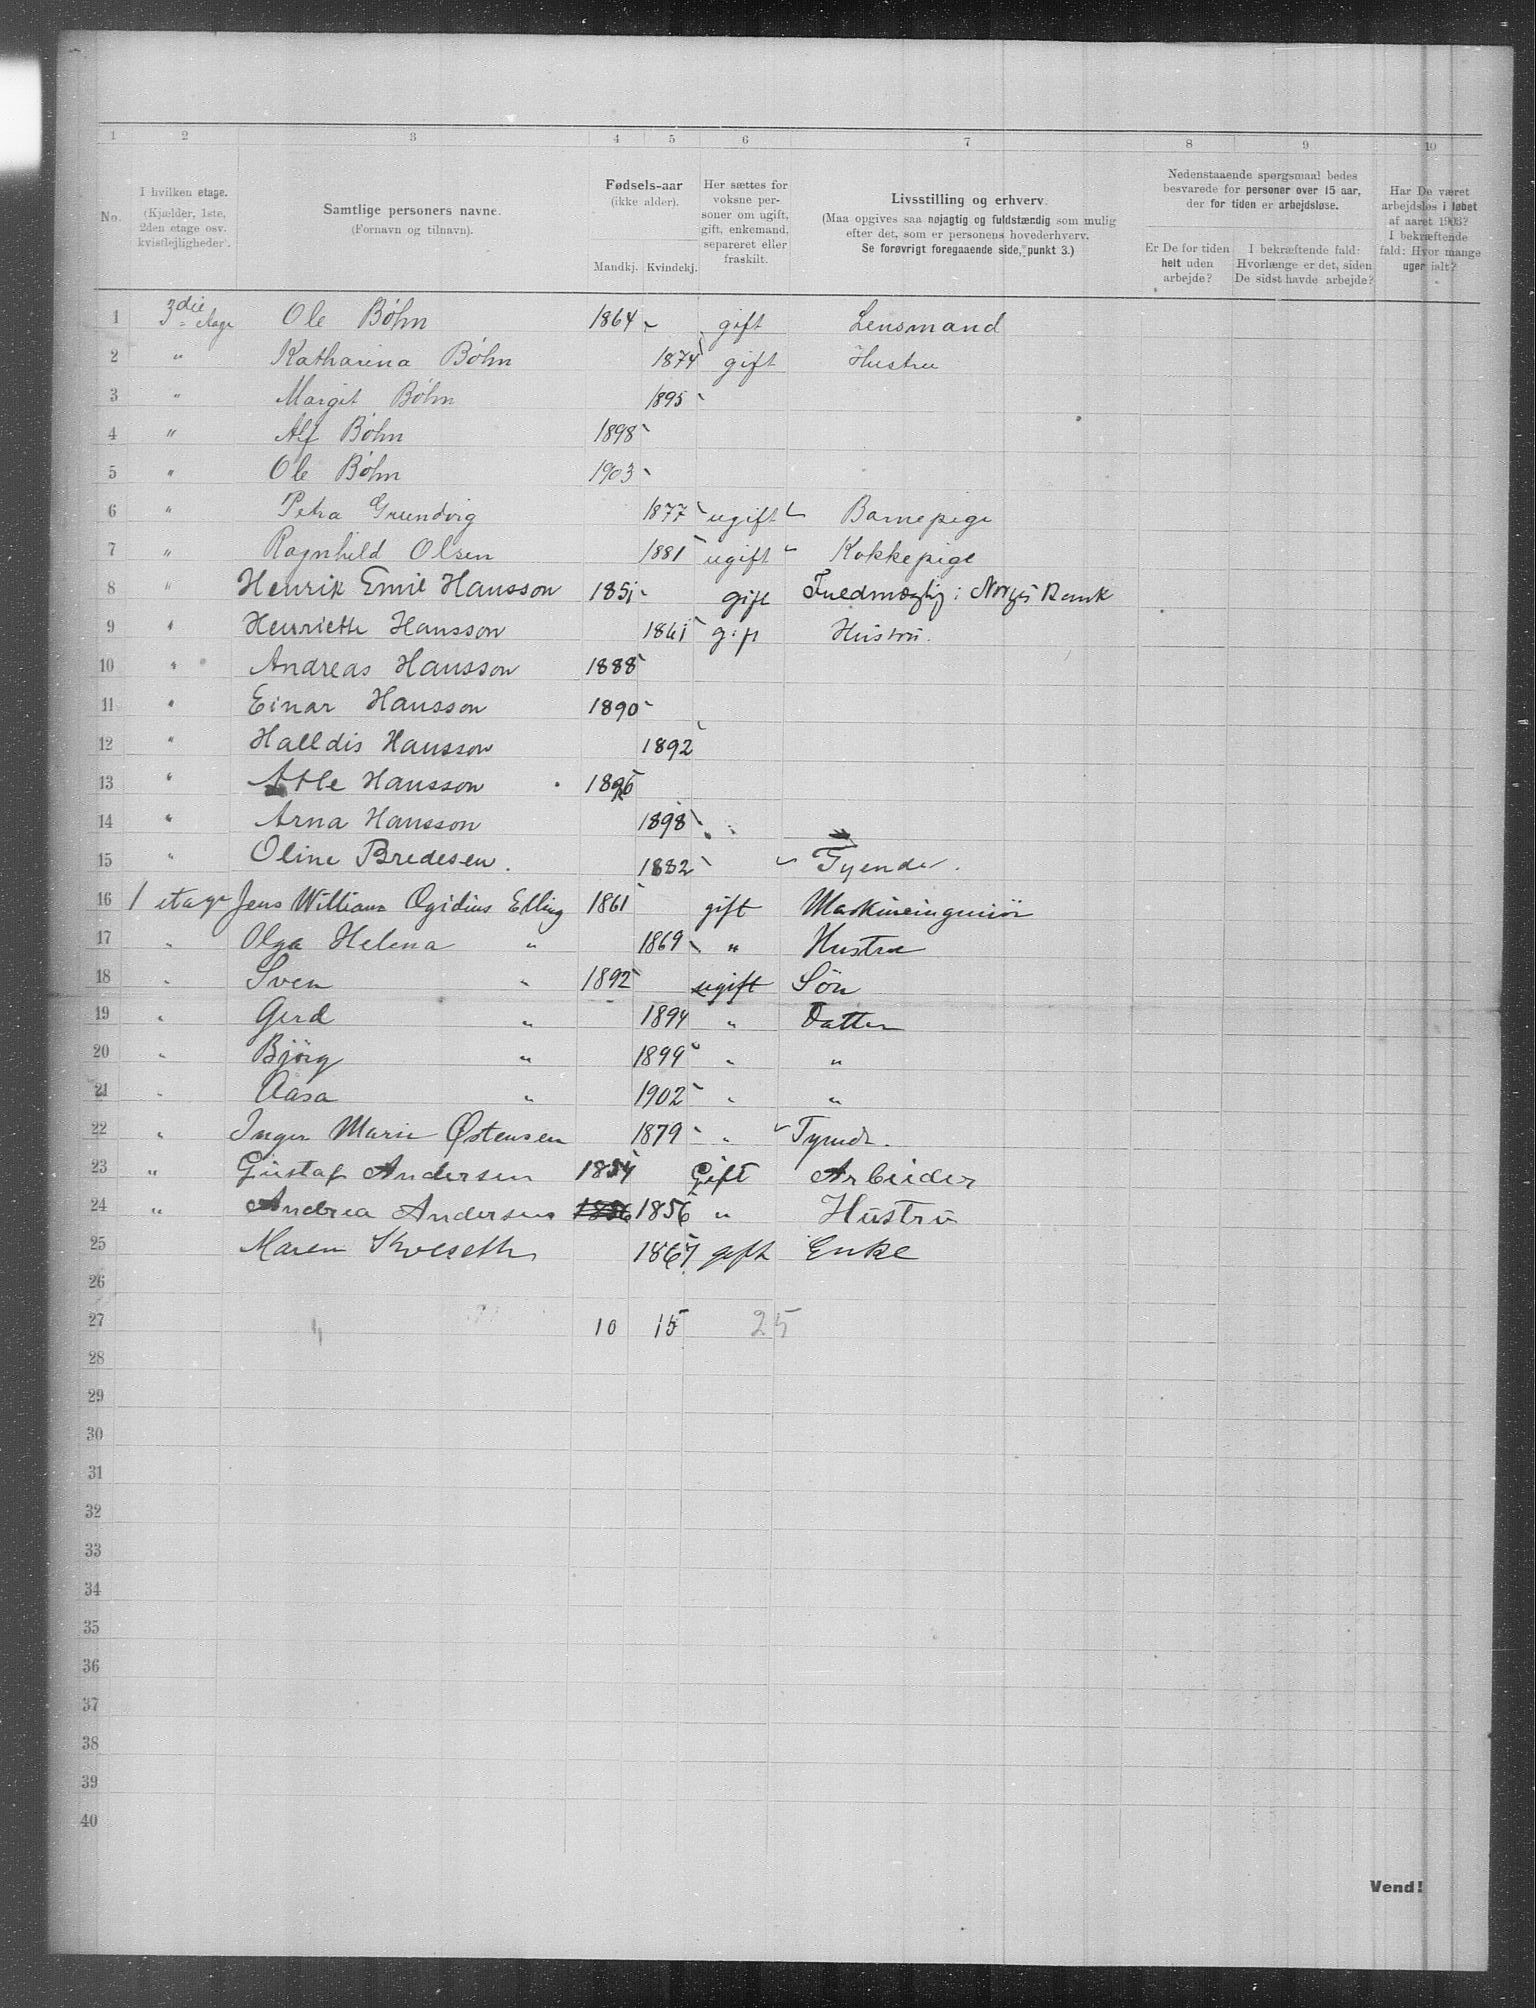 1 2 3 4 5 6 7 8 9 10
No.
I hvilken etage.
(Kjælder, 1ste, 2den etage osv. kvistlejligheder).
Samtlige personers navne.
(Fornavn og tilnavn).
Fødsels-aar
(ikke alder).
Mandkj. Kvindekj.
Her sættes for voksne personer om ugift, gift, enkemand, separeret eller fraskilt.
Livsstilling og erhverv.
(Maa opgives saa nøjagtig og fuldstændig som mulig efter det, som er personens hovederhverv.
Se forøvrigt foregaaende side, punkt 3.)
Nedenstaaende spørgsmaal bedes besvarede for personer over 15 aar, der for tiden er arbejdsløse.
Er De for tiden helt uden arbejde?
I bekræftende fald: Hvorlænge er det, siden De sidst havde arbejde?
Har De været arbejdsløs i løbet af aaret 1903? I bekræftende fald: Hvor mange uger ialt?
1 3die Etage Ole Bøhn 1864 gift Lensmand
2 " Katharina Bøhn 1874 gift Hustru
3 " Margit Bøhn 1895
4 " Alf Bøhn 1898
5 " Ole Bøhn 1903
6 " Petra Grundvig 1877 ugift Barnepige
7 " Ragnhild Olsen 1881 ugift Kokkepige
8 " Henrik Emil Hansson 1851 gift Fuldmægtig i Norges Bank
9 " Henriette Hansson 1861 gift Hustru.
10 " Andreas Hansson 1888
11 " Einar Hansson 1890
12 " Halldis Hansson 1892
13 " Atle Hansson 1896
14 " Arna Hansson 1898
15 " Oline Bredesen. 1882 Tyende.
16 1 etage Jens William Ogidius Elling 1861 gift Maskiningeniör
17 " Olga Helena " 1869 " Hustru
18 " Sven " 1892 ugift Sön
19 " Gerd " 1894 " Datter
20 " Björg " 1899 " "
21 " Aasa " 1902 " "
22 " Inger Marie Østensen 1879 " Tyende.
23 " Gustaf Andersen 1854 Gift Arbeider
24 " Andrea Andersen 1856 1856 " Hustru
25 Maren 1867 gift Enke
26
27 10 15 25
28
29
30
31
32
33
34
35
36
37
38
39
40
Vend!